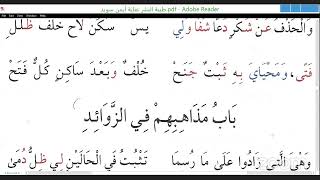 طيبة النشر عناية أيمن سويد.pdf - Adobe Reader
وَالْحَذْفَ عَنْ شَكْرٍ دَعَا شَفَا وَلِي يس سَكِّنْ لَاحَ خُلْفُ ظُلَلِ
فَتًى، وَمَحْيَايَ بِهِ ثَبْتٌ جَنَحْ خُلْفٌ وَبَعْدَ سَاكِنٍ كُلٌّ فَتَحْ
بَابُ مَذَاهِبِهِمْ فِي الزَّوَائِدِ
وَهْيَ الَّتِي زَادُوا عَلَىٰ مَا رُسِمَا تَثْبُتُ فِي الْحَالَيْنِ لِي ظِلٌّ دُمَىٰ